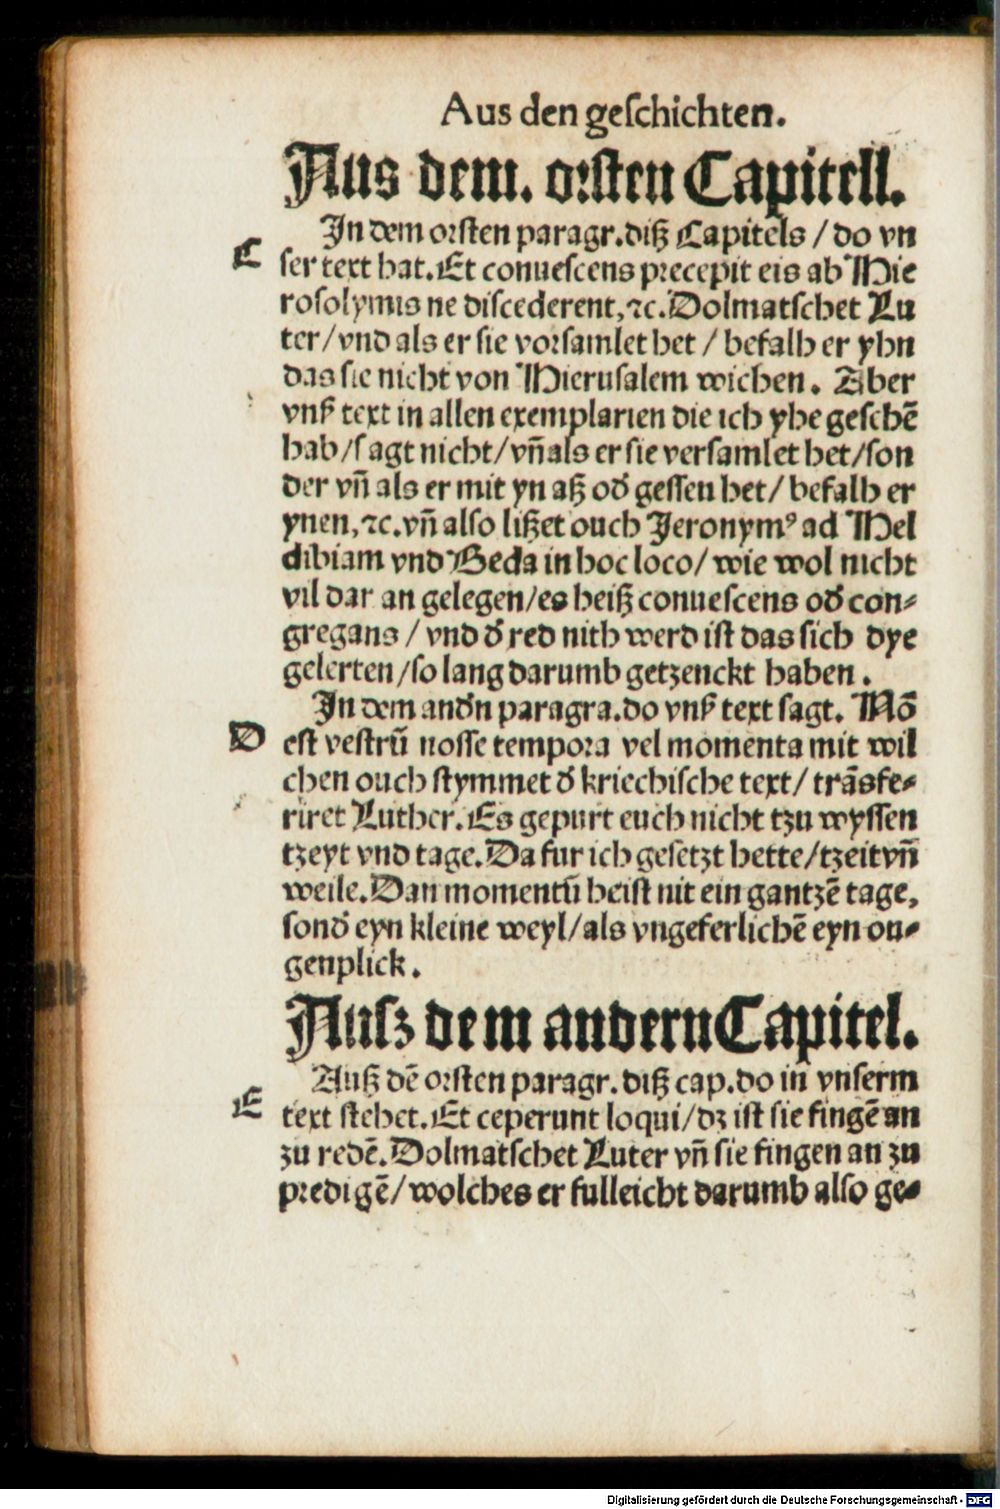 Aus den geſchichten.
Aus dem. orſten Capitell.
In dem orſten paragr. diſz Capitels / do vn
C
ſer text hat. Et conueſcens precepit eis ab Hie
roſolymis ne diſcederent, ⁊c. Dolmatſchet Lu
ter / vnd als er ſie vorſamlet het / befalh er yhn
das ſie nicht von Hieruſalem wichen. Aber
vnſ text in allen exemplarien die ich yhe geſehē
hab / ſagt nicht / vñ als er ſie verſamlet het / ſon
der vñ als er mit yn aſz od̓ geſſen het / befalh er
ynen, ⁊c. vñ alſo liſzet ouch Jeronymꝰ ad Hel
dibiam vnd Beda in hoc loco / wie wol nicht
vil dar an gelegen / es heiſz conueſcens od̓ con⸗
gregans / vnd d̓ red nith werd iſt das ſich dye
gelerten / ſo lang darumb getzenckt haben.
In dem and̓n paragra. do vnſ text ſagt. Nō
D
eſt veſtrū noſſe tempora vel momenta mit wil
chen ouch ſtymmet d̓ kriechiſche text / trāsfe⸗
riret Luther. Es gepurt euch nicht tzu wyſſen
tzeyt vnd tage. Da fur ich geſetzt hette / tzeit vñ
weile. Dan momentū heiſt nit ein gantzē tage,
ſond̓ eyn kleine weyl / als vngeferlichē eyn ou⸗
genplick.
Auſz dem andern Capitel.
Auſz dē orſten paragr. diſz cap. do in vnſerm
E
text ſtehet. Et ceperunt loqui / dz iſt ſie fingē an
zu redē. Dolmatſchet Luter vñ ſie fingen an zu
predigē / wolches er fulleicht darumb alſo ge⸗
Digitalisierung gefördert durch die Deutsche Forschungsgemeinschaft - DFG